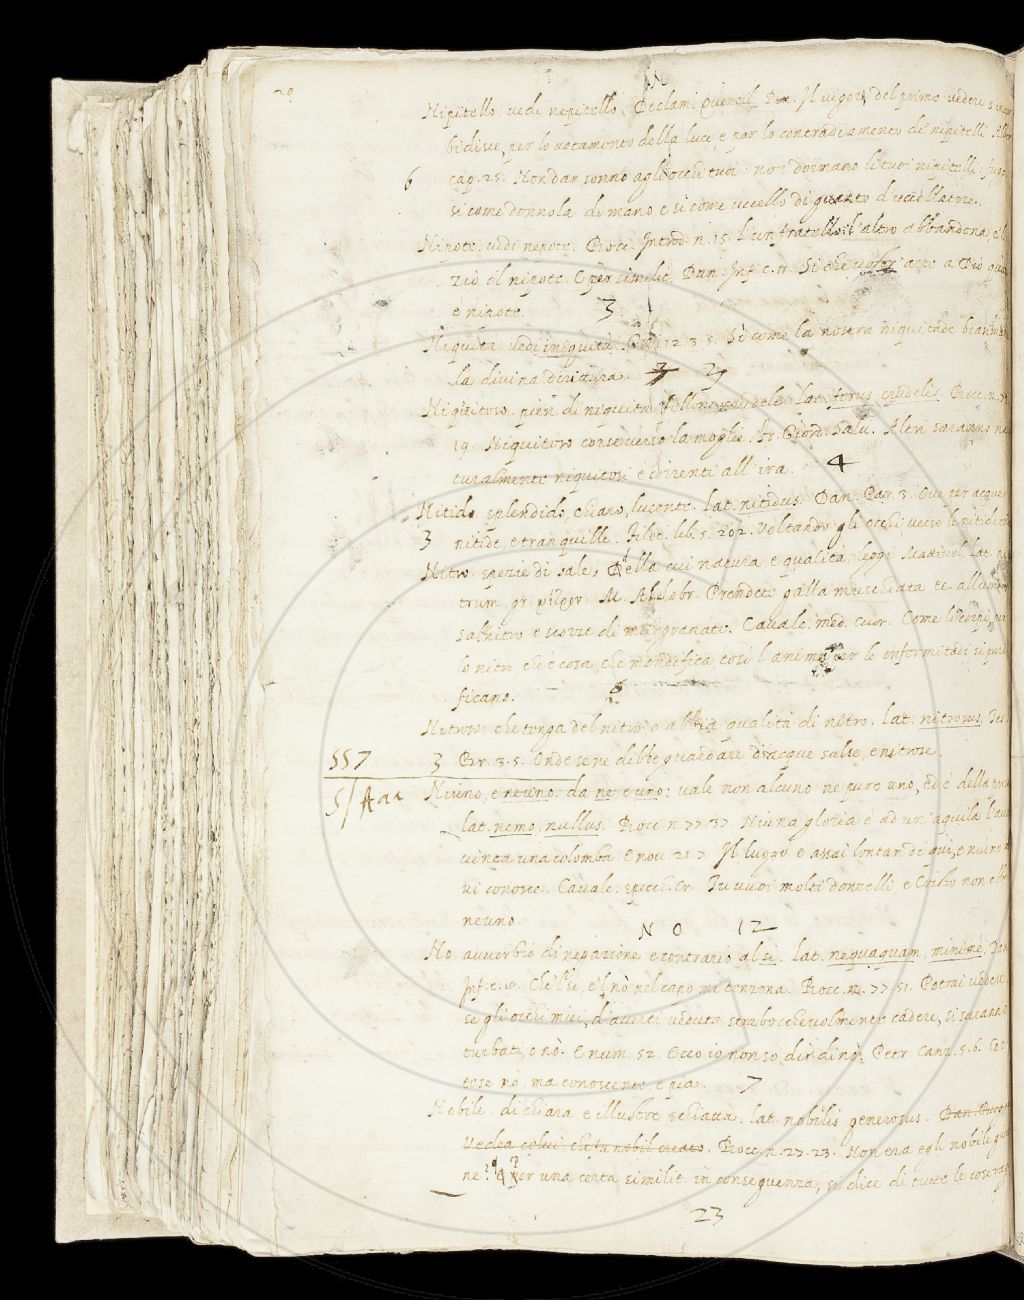 20
N
Nipitello. vedi nepitello. Declam. Quintil. P. Il vigor del primo vedere
bidisce, per lo votamento della luce e per lo contradiamento de' nipitelli
6 cap. 25. Non dar sonno agli occhi tuoi: non dormano li tuoi nipitelli:
si come donnola di mano, e si come uccello di guanto d'uccellatore.
Nipote. vedi nepote. Bocc. Introd. n. 15. l'un fratello l'altro abbandona, e'l
zio il nipote. E per similit. Dan. Inf. c. 11. Si che vostr'arte a Dio quasi
è nipote. 3
Niquità vedi iniquità. 12. 3. 5. Sì come la nostra niquitade
la divina dirittura. 3
Niquitoso. pien di niquità, fellone, crudele. lat. ferus, crudelis. Bocc. n.
19. Niquitoso corse verso la moglie. Fr. Giord. Salu. Altri saranno na
turalmente niquitosi e correnti all'ira. 4
Nitido. splendido, chiaro, lucente. lat. nitidus. Dan. Par. 3. Over per acque
3 nitide, e tranquille. Filoc. lib. 5. 202. Voltando gli occhi verso le nitide
Nitro. spezie di sale, della cui natura, e qualità, leggi Mattiuol. lat. ni
trum, gr. νίτρον. M. Aldobr. Prendete galla muschiata ec. allume
salnitro e scorze di melegranate. Cavalc. med. cuor. Come li corpi, per
lo nitro, che è cosa, che mondifica, così l'anime per le infermitadi, si puri
ficano. 6
Nitroso. che tenga del nitro, o abbia qualità di nitro. lat. nitrosus. Tes.
557 3 Br. 3. 5. Onde se ne debbe guardare d'acque salse, e nitrose.
5/Aaa Niuno, e neuno. da ne, e uno: vale non alcuno ne pure uno, ed è della
lat. nemo, nullus. Bocc. n. 77. 37. Niuna gloria è ad un'aquila l'aver
vinta una colomba. E nov. 21. 7. Il luogo è assai lontan di qui, e niuno
vi conosce. Cavalc. specch. Cr. Tu vuoi molti donzelli e Cristo non ebbe
neuno.
NO 12
No avverbio di negazione e contrario al sì. lat. nequaquam, minimè. Dan.
Inf. c. 8. Che'l sì, e'l nò nel capo mi tenzona. Bocc. n. 77. 51. Potrai vedere
se gli occhi miei, d'averti veduta strabocchevolmente cadere, si saranno
turbati, o nò. E num. 52. Ecco io non so dir di nò. Petr. Canz. 5. 6. Cor
tese no, ma conoscente, e pia. 7
Nobile. di chiara, e illustre schiatta. lat. nobilis generosus. Dan. Purg.
Vedea colui che fu nobil creato. Bocc. n. 27. 23. Non era egli nobile giova
ne? Per una certa similit. in conseguenza, si dice di tutte le cose
23